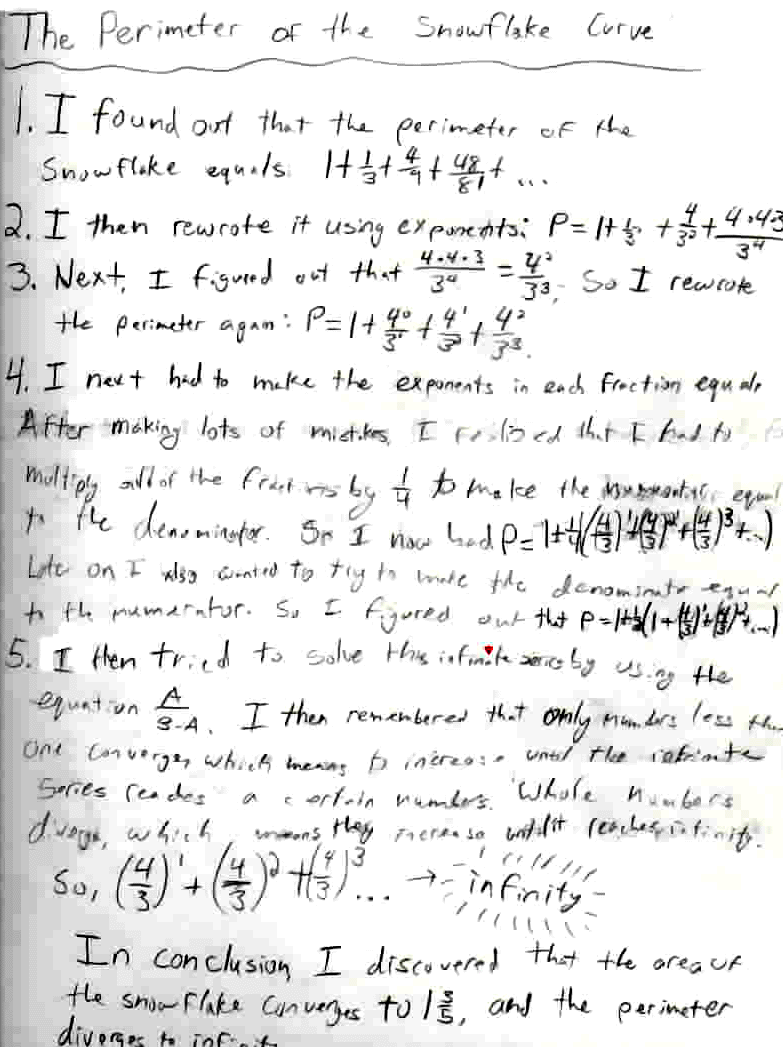 The Perimeter of the Snowflake Curve
1. I found out that the perimeter of the
Snowflake equals: 1+1/3+4/9+48/81+...
2. I then rewrote it using exponents: P=1+1/3¹+4/3²+4·4·3/3⁴
3. Next, I figured out that 4·4·3/3⁴=4²/3³. So I rewrote
the perimeter again: P=1+4⁰/3¹+4¹/3²+4²/3³.
4. I next had to make the exponents in each fraction equal.
After making lots of mistakes, I realized that I had to
multiply all of the fractions by 1/4 to make the equal
to the denominator. So I now had P=1+1/4((4/3)¹+(4/3)²+(4/3)³+...)
Later on I also wanted to try to make the denominator equal
to the numerator. So I figured out that P=1+1/3(1+(4/3)¹+(4/3)²+...)
5. I then tried to solve this infinite series by using the
equation A/B-A. I then remembered that only numbers less than
one converge, which means to increase until the infinite
series reaches a certain numbers. Whole numbers
diverge, which means they increase until it reaches infinity.
So, (4/3)¹+(4/3)²+(4/3)³... → infinity
In conclusion, I discovered that the area of
the snowflake converges to 1 3/5, and the perimeter
diverges to infinity